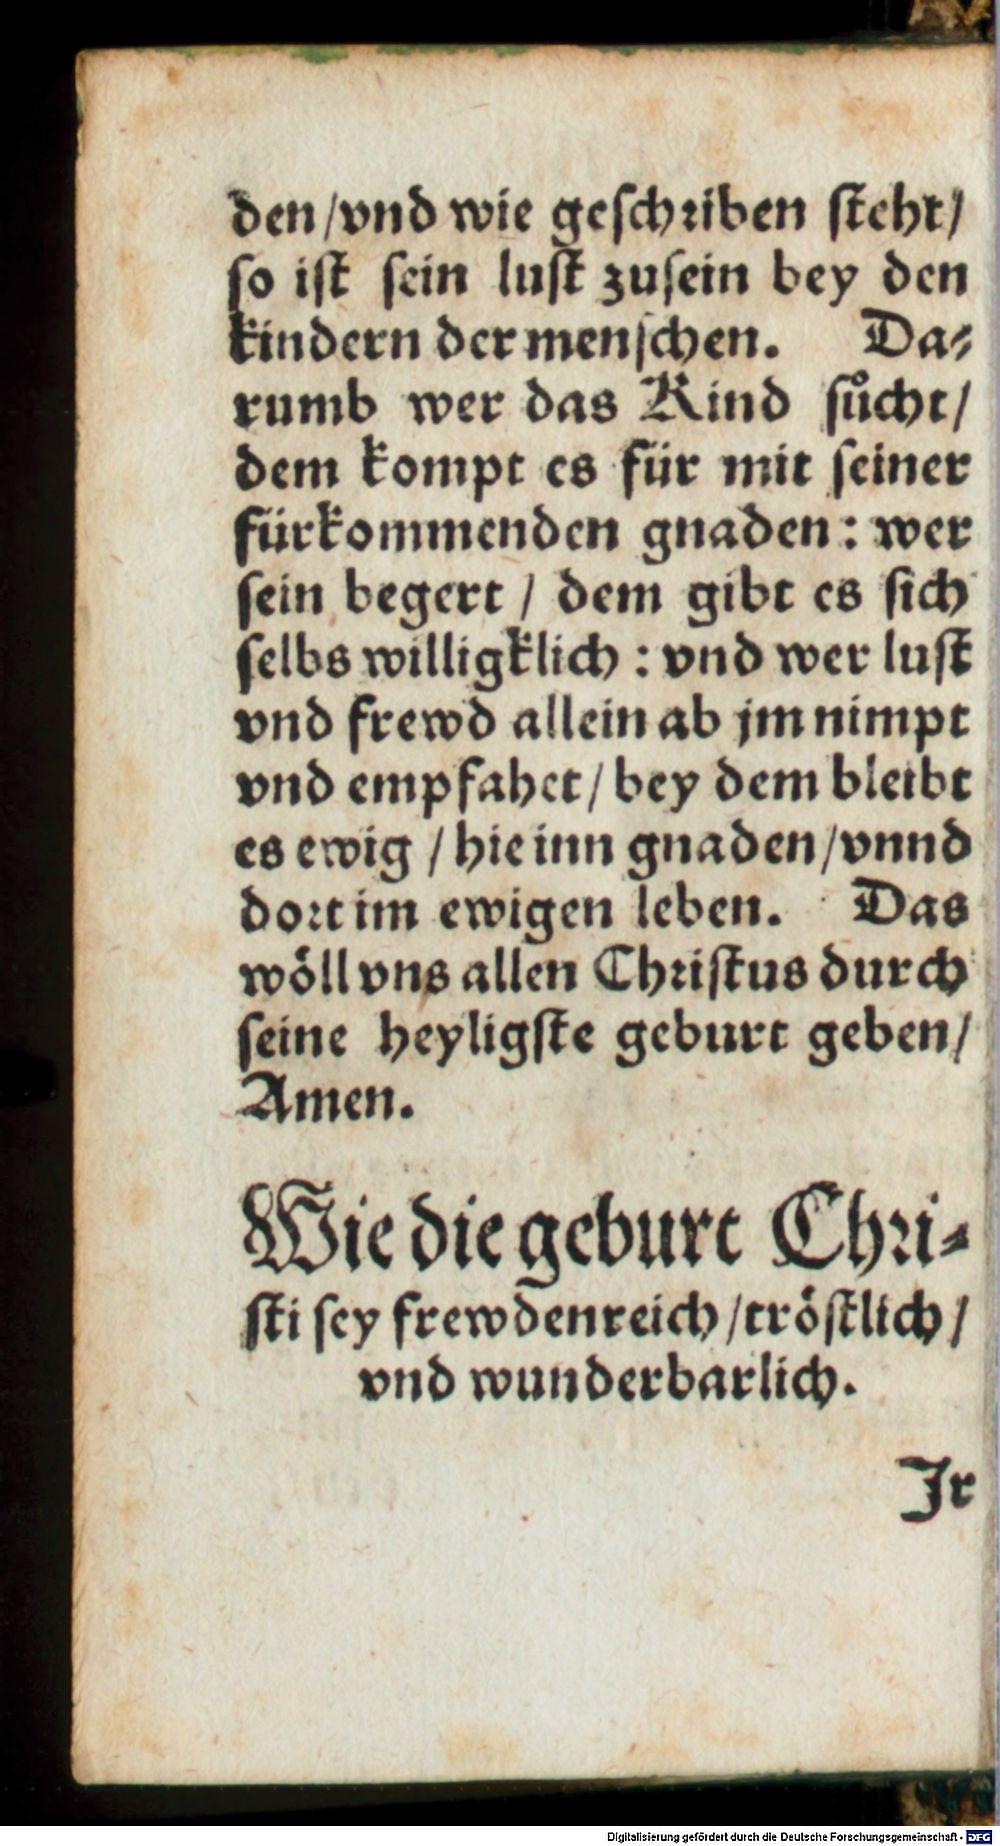 den/vnd wie geschriben steht/
so ist sein lust zusein bey den
kindern der menschen. Da⸗
rumb wer das Kind sůcht/
dem kompt es für mit seiner
fürkommenden gnaden: wer
sein begert / dem gibt es sich
selbs willigklich: vnd wer lust
vnd frewd allein ab jm nimpt
vnd empfahet/ bey dem bleibt
es ewig / hie inn gnaden/vnnd
dort im ewigen leben. Das
wöll vns allen Christus durch
seine heyligste geburt geben/
Amen.
Wie die geburt Chri⸗
sti sey frewdenreich/tröstlich/
vnd wunderbarlich.
Jr
Digitalisierung gefördert durch die Deutsche Forschungsgemeinschaft - DFG